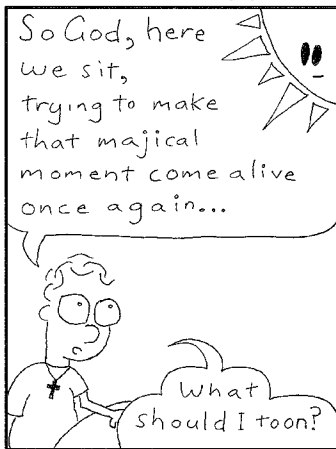 So God, here
we sit,
trying to make
that majical
moment come alive
once again...
What
should I toon?